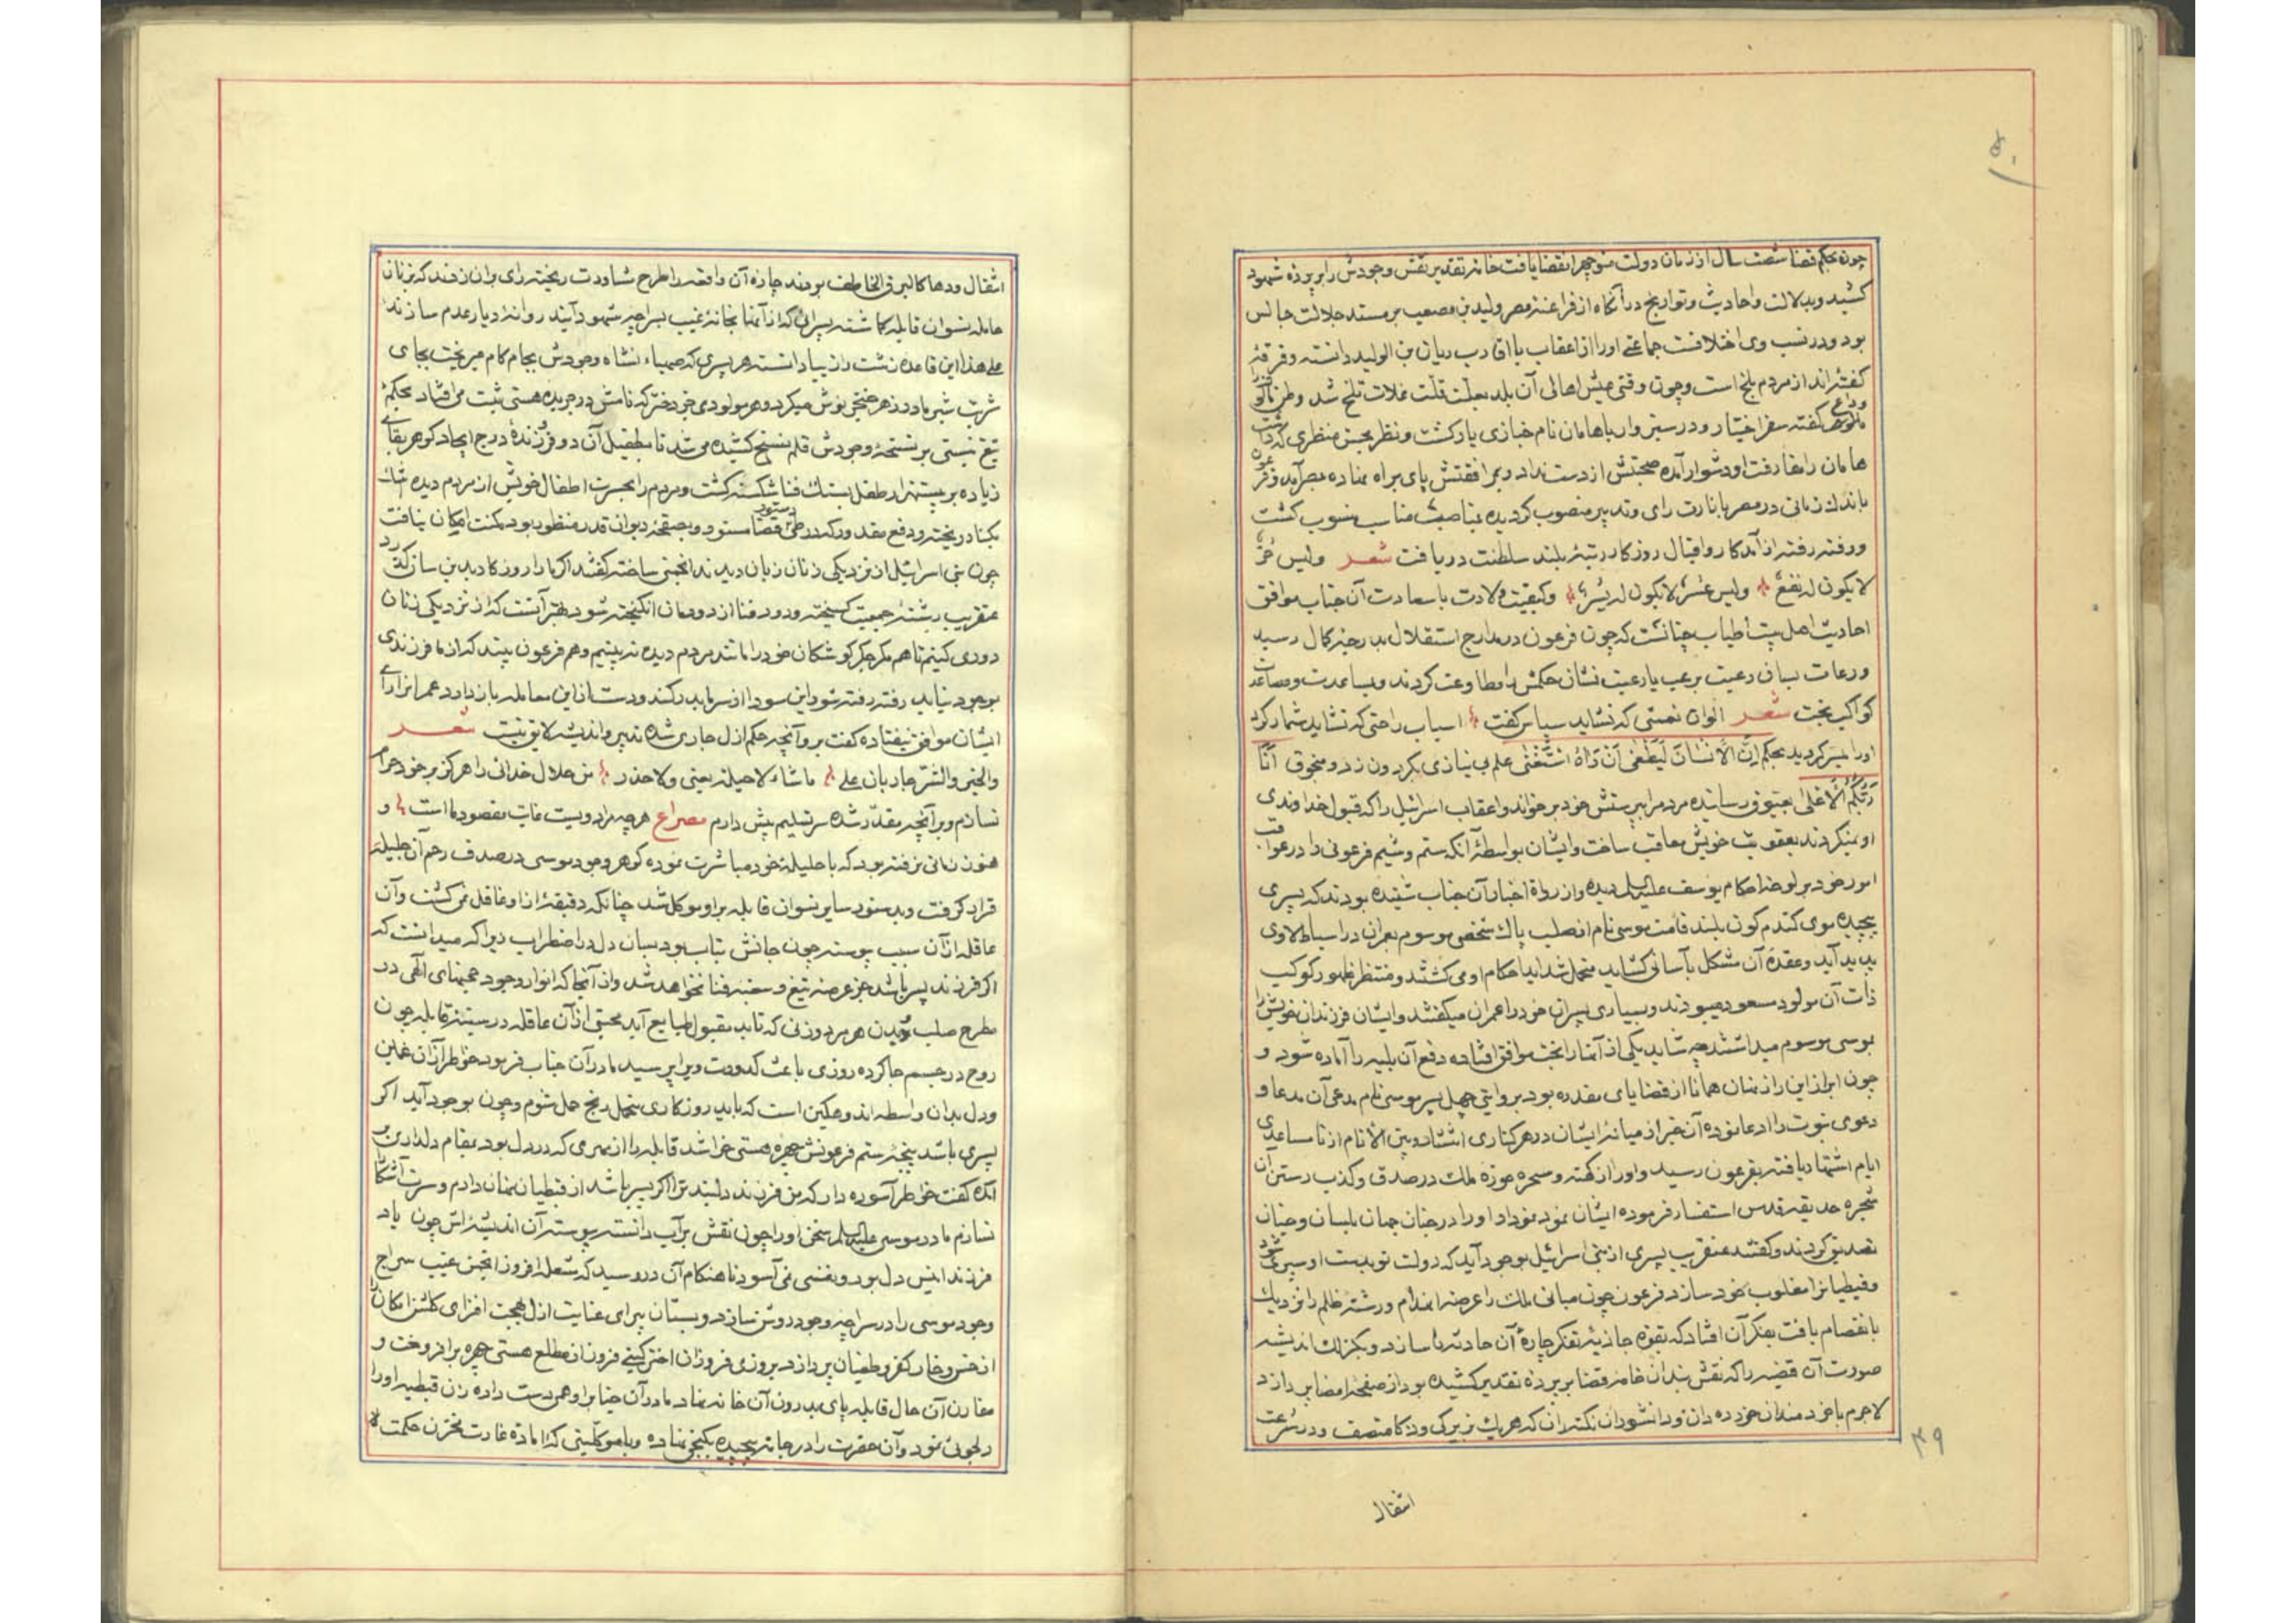 چون بحکم قضا شصت سال از زمان دولت منوچهر انقضا یافت خامهٔ تقدیر نقش وجودش را بر پردهٔ شهود
کشید و بدلالت احادیث و تواریخ در آنگاه از فراعنهٔ مصر ولید بن مصعب بر مسند جلالت جالس
بود و در نسب وی اختلافست جماعتی او را از اعقاب یا اقارب ریان بن الولید دانسته و فرقهٔ
گفته‌اند از مردم بلخ است و چون وقتی عیش اهالی آن بلد بعلت قلت غلات تلخ شد وطن
وداع گفته سفر اختیار و در سیر وارد باهامان نام خبازی یار گشت و نظر بحسن منظری که داشت
هامان را مفارقت او دشوار آمده صحبتش از دست نداد و بمرافقتش پای براه نهاده بمصر آمد و فرعون
باندک زمانی در مصر بانارت رای و تدبیر منصوب گردیده بمناصب مناسب منسوب گشت
و رفته رفته از مدد کار و اقبال روزگار رتبهٔ بلند سلطنت دریافت شعر ولیس
لا یکون له نفع ولیس عسر لا یکون له یسر و کیفیت ولادت با سعادت آن جناب موافق
احادیث اهل بیت اطیاب چنانست که چون فرعون در مدارج استقلال بدرجهٔ کمال رسید
و رعات بسان رعیت برعب یا رعیت نشان حکمش را مطاوعت کردند و بمساعدت و مصاعدت
کواکب بخت شعر الوان نعمتی که نشاید سپاس گفت اسباب راحتی که نشاید شمار کرد
او را میسر گردید بحکم اِنَّ الاِنسانَ لَیَطغی اَن رَآهُ استَغنی علم بی نیازی بگردون زد و منجوق اَنَا
رَبُّکُمُ الاَعلی بعیوق رسانده مردم را بپرستش خود بر خواند و اعقاب اسرائیل را که قبول خداوندی
او نمیکردند بعقوبت خویش معاقب ساخت و ایشان بواسطهٔ آنکه ستم و شیم فرعونی را در عواقب
امور خود بر لوح احکام یوسف علیه السلم دیده و از رواة اخبار آن جناب شنیده بودند که پسری
پیچیده موی گندم گون بلند قامت موسی نام از صلب پاک شخصی موسوم بعمران در اسباط لاوی
پدید آید و عقدهٔ آن مشکل بآسانی گشاید متحمل شداید احکام او می گشتند و منتظر ظهور کوکب
ذات آن مولود مسعود میبودند و بسیاری پسران خود را عمران میگفتند و ایشان فرزندان خویش را
موسی موسوم میداشتند چه شاید یکی از آنها را بخت موافق افتاده دفع آن بلیه را آماده شود و
چون ابراز این راز نهان همانا از قضایای مقدره بود بروایتی چهل پسر موسی نام مدعی آن مدعا و
دعوی نبوت را ادعا نموده آن خبر از میانهٔ ایشان در هر کناری انتشار و بین الانام از نا مساعدی
ایام اشتهار یافته بفرعون رسید و او از کهنه و سحره حوزهٔ ملک در صدق و کذب رستن آن
شجرهٔ حدیقهٔ قدس استفسار فرموده ایشان نمود
تصدیق کردند و گفتند عنقریب پسری از بنی اسرائیل بوجود آید که دولت تو بدست او سپری شود
و قبطیان را مغلوب خود سازد فرعون چون مبانی ملک را عرضهٔ انهدام و رشتهٔ ظلم را نزدیک
بانفصام یافت بفکر آن افتاد که بقوهٔ جاذبهٔ تفکر چارهٔ آن حادثه را سازد و بکزلک اندیشه
صورت آن قضیه را که نقش بندان خامهٔ قضا بر پردهٔ تقدیر کشیده بود از صفحهٔ امضا پردازد
لاجرم با خردمندان خرده دان و دانشوران نکته‌ران که هر یک بزیرکی و ذکا متصف و در سرعت
انتقال
۴۰
۳۹
انتقال و دها کالبرق الخاطف بودند چارهٔ آن واقعه را طرح مشاورت ریخته رای بر آن زدند که بر زنان
حامله نسوان قابله گماشته پسرانی که از آنها بخانهٔ غیب بسراچهٔ شهود آیند روانهٔ دیار عدم سازند
علی هذا این قاعدهٔ زشت را زیبا دانسته هر پسری که صهباء نشاه وجودش بجام کام میریخت بجای
شربت شیر مادر زهر خنجر نوش میکرد و هر مولودی جز دختر که نامش در جریدهٔ هستی ثبت می افتاد بحکم
تیغ نیستی بر نسخهٔ وجودش قلم نسخ کشیده می شد تا بطفیل آن دو فرزندهٔ درج ایجاد گوهر بقای
زیاده بر بیست هزار طفل بسنگ فنا شکسته گشت و مردم را بحسرت اطفال خویش از مردم دیده اشک
بکنار ریخته و دفع مقدور که در طی قضا مستور و بصفحهٔ دیوان قدر منظور بود مکنت امکان نیافت
چون بنی اسرائیل از نزدیکی زنان زیان دیدند انجمنی ساخته گفتند اگر ما را روزگار بدین سان گذرد
عنقریب رشتهٔ جمعیت گسیخته و دود فنا از دودمان انگیخته شود بهتر آنست که از نزدیکی زنان
دوری کنیم تا هم مگر جگر گوشگان خود را مانند مردم دیده نه بینیم و هم فرعون بیند که از ما فرزندی
بوجود نیاید رفته رفته شود این سودا از سر ما بدر کند و دست از این معامله باز دارد عمران را رای
ایشان موافق نیفتاده گفت بروآنچه حکم ازل جاری شده تدبیر و اندیشه لایق نیست شعر
والخیر والشر جاریان علی ما شاء لا حیلة یغنی ولا حذر من حلال خدائی را هرگز بر خود حرام
نسازم و بر آنچه مقدر شده سر تسلیم پیش دارم مصراع هر چه مراد ویست غایت مقصود ما است و
هنوز زمانی نرفته بود که با حلیلهٔ خود مباشرت نموده گوهر وجود موسی در صدف رحم آن جلیله
قرار گرفت و بدستور سایر نسوان قابله بر او موکل شد چنانکه دقیقهٔ از او غافل نمی گشت و آن
عاقله از آن سبب پیوسته چون جانش بیتاب بود بسان دل در اضطراب زیرا که میدانست که
اگر فرزند پسر باشد جز عرضهٔ تیغ و سخبهٔ فنا نخواهد شد و از آنجا که انوار وجود
مطرح صلب هر مرد و زنی که تابد مقبول طبایع آید محبتی از آن عاقله در سینهٔ قابله چون
روح در جسم جا کرده روزی باعث کدورت ویرا پرسید مادر آن جناب فرمود خاطرم از آن غمین
و دل بدان واسطه اندوهگین است که باید روزگاری متحمل رنج حمل شوم و چون بوجود آید اگر
پسری باشد پنجهٔ ستم فرعونش چهرهٔ هستی خراشد قابله را از مهری که در دل بود بمقام دلداری بر
آمده گفت خاطر آسوده دار که من فرزند دلبند ترا اگر پسر باشد از قبطیان نهان دارم و سرت آشکار
نسازم مادر موسی علیه السلم سخن او را چون نقش بر آب دانسته پیوسته آن اندیشه‌اش چون یاد
فرزند انیس دل بود و بنفسی نمی آسود تا هنگام آن در رسید که شعله افروز انجمن غیب سراج
وجود موسی را در سراچهٔ وجود روشن سازد و بستان پیرای عنایت ازل بهجت افزای گلشن امکان را
از خس و خار کفر و طغیان پردازد بروزی فروزان اختر گیتی فروز از مطلع هستی چهره برافروخت و
مقارن آن حال قابله پای بدرون آن خانه نهاد مادر آن جناب را وهم دست داده زن قبطیه او را
دلجوئی نمود و آن حضرت را در جامه پیچیده بکنجی نهاده و با موکلینی که آمادهٔ غارت مخزن حکمت